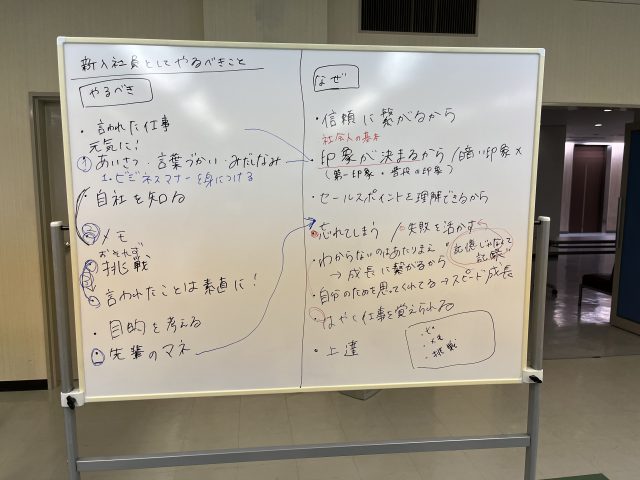 新入社員としてやるべきこと
やるべき
・言われた仕事
元気に!
① あいさつ・言葉づかい・みだしなみ
1.ビジネスマナーを身につける
・自社を知る
② メモ
おそれず
挑戦
言われたことは素直に!
・目的を考える
先輩のマネ
なぜ
・信頼に繋がるから
社会人の基本
・印象が決まるから/暗い印象×
(第一印象・普段の印象)
・セールスポイントを理解できるから
・忘れてしまう/失敗を活かす
・わからないのはあたりまえ
"記憶じゃなくて記録"
→成長に繋がるから
・自分のためを思ってくれてる→スピード成長
・はやく仕事を覚えられる
・上達
・メモ
・挑戦